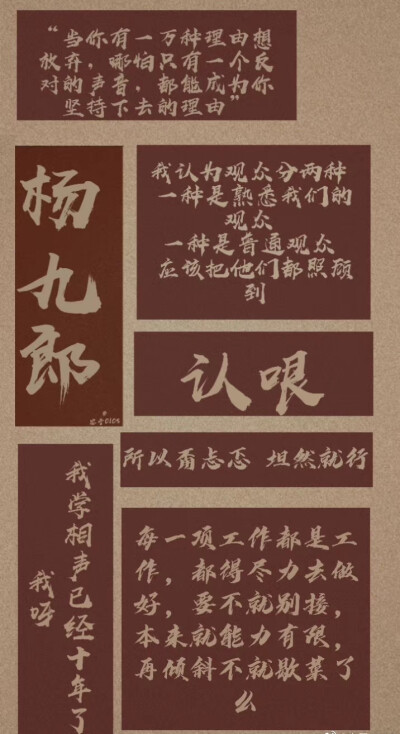 “当你有一万种理由想
放弃，哪怕只有一个反
对的声音，都能成为你
坚持下去的理由”
杨九郎
我认为观众分两种
一种是熟悉我们的
观众
一种是普通观众
应该把他们都照顾
到
认哏
所以甭忐忑 坦然就行
我学相声已经十年了
我呀
每一项工作都是工
作，都得尽力去做
好，要不就别接，
本来就能力有限，
再倾斜不就歇菜了
么